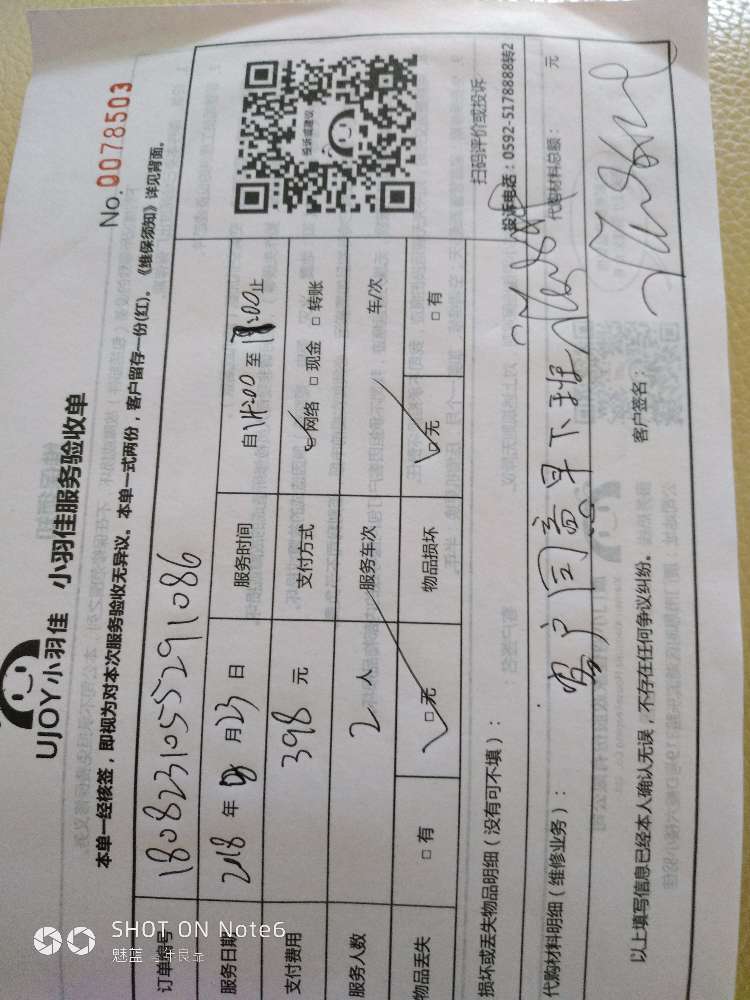 UJOY小羽佳 小羽佳服务验收单
No. 0078503
本单一经核签，即视为对本次服务验收无异议。本单一式两份，客户留存一份(红)。《维保须知》详见背面。
订单编号 1808231055291086
服务日期 2018 年 8 月 23 日 服务时间 自 14:00 至 18:00 止
支付费用 398 元 支付方式 ☑网络 □现金 □转账
服务人数 2 人 服务车次 车/次
物品丢失 □有 ☑无 物品损坏 ☑无 □有
投诉或建议
扫码评价或投诉
投诉电话：0592-5178888转2
损坏或丢失物品明细（没有可不填）：
客户同意早下班
代购材料明细（维修业务）： 代购材料总额： 元
以上填写信息已经本人确认无误，不存在任何争议纠纷。 客户签名：
SHOT ON Note6
魅蓝